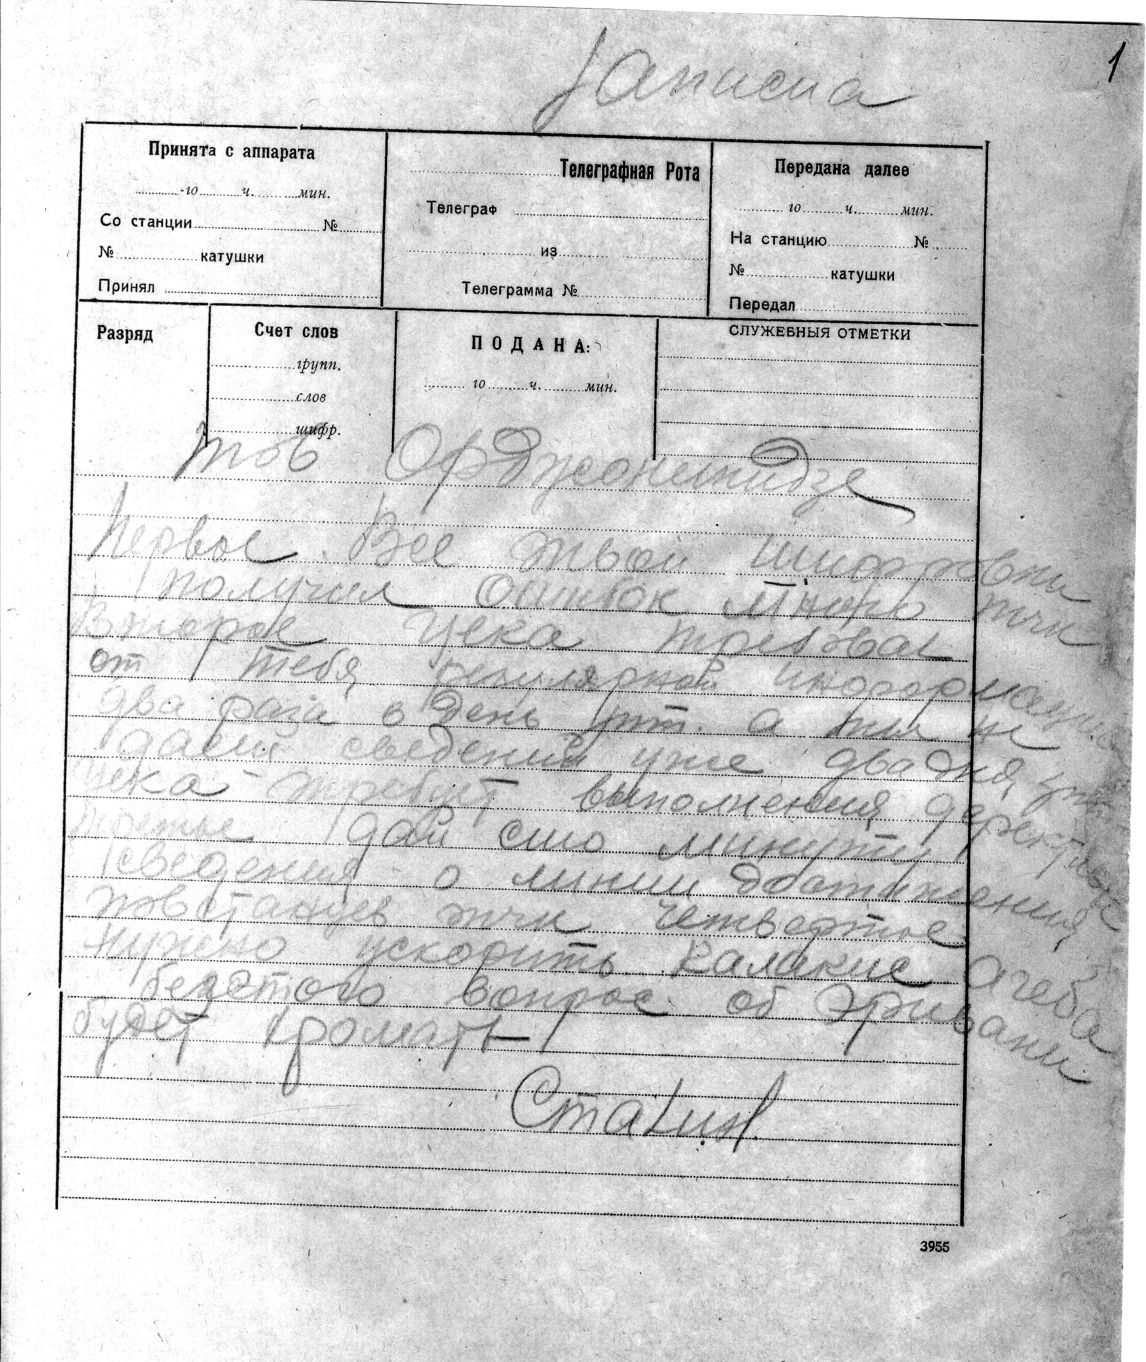 Записка
1
Принята с аппарата
го ч. мин.
Со станции №
№ катушки
Принял
Телеграфная Рота
Телеграф
из
Телеграмма №
Передана далее
го ч. мин.
На станцию №
№ катушки
Передал
Разряд
Счет слов
групп.
слов
шифр.
ПОДАНА:
го ч. мин.
СЛУЖЕБНЫЯ ОТМЕТКИ
тов Орджоникидзе
Первое. Все твои шифровки
получил ошибок много тчк
Второе Цека требовал
от тебя регулярной информации
два раза в день а ты не
даеш сведений уже два дня
Цека требует выполнения
Третье дай сию минуту
сведения о линии достижения
повстанцев тчк четвертое
нужно ускорить
без этого вопрос об Эривани
будет хромать
Сталин.
3955